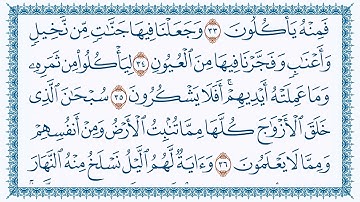 فَمِنْهُ يَأْكُلُونَ ٣٣ وَجَعَلْنَا فِيهَا جَنَّاتٍ مِّن نَّخِيلٍ
وَأَعْنَابٍ وَفَجَّرْنَا فِيهَا مِنَ الْعُيُونِ ٣٤ لِيَأْكُلُوا مِن ثَمَرِهِ
وَمَا عَمِلَتْهُ أَيْدِيهِمْ أَفَلَا يَشْكُرُونَ ٣٥ سُبْحَانَ الَّذِي
خَلَقَ الْأَزْوَاجَ كُلَّهَا مِمَّا تُنۢبِتُ الْأَرْضُ وَمِنْ أَنفُسِهِمْ
وَمِمَّا لَا يَعْلَمُونَ ٣٦ وَءَايَةٌ لَّهُمُ الَّيْلُ نَسْلَخُ مِنْهُ النَّهَارَ